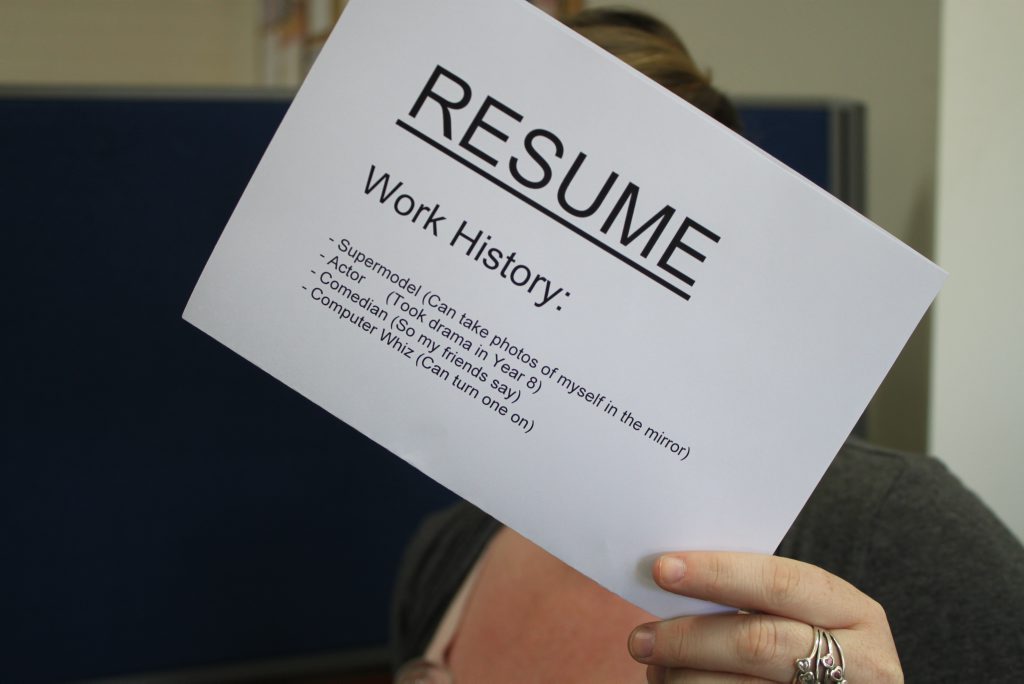 RESUME
Work History:
- Supermodel (Can take photos of myself in the mirror)
- Actor (Took drama in Year 8)
- Comedian (So my friends say)
- Computer Whiz (Can turn one on)